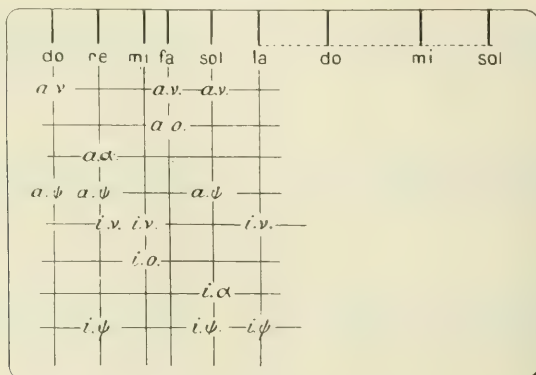 do re mi fa sol la do mi sol
a ν a.ν. a.ν.
a o.
a.α
a.ψ a.ψ a.ψ
i.ν. i.ν. i.ν.
i.o.
i.α
i.ψ i.ψ. i.ψ